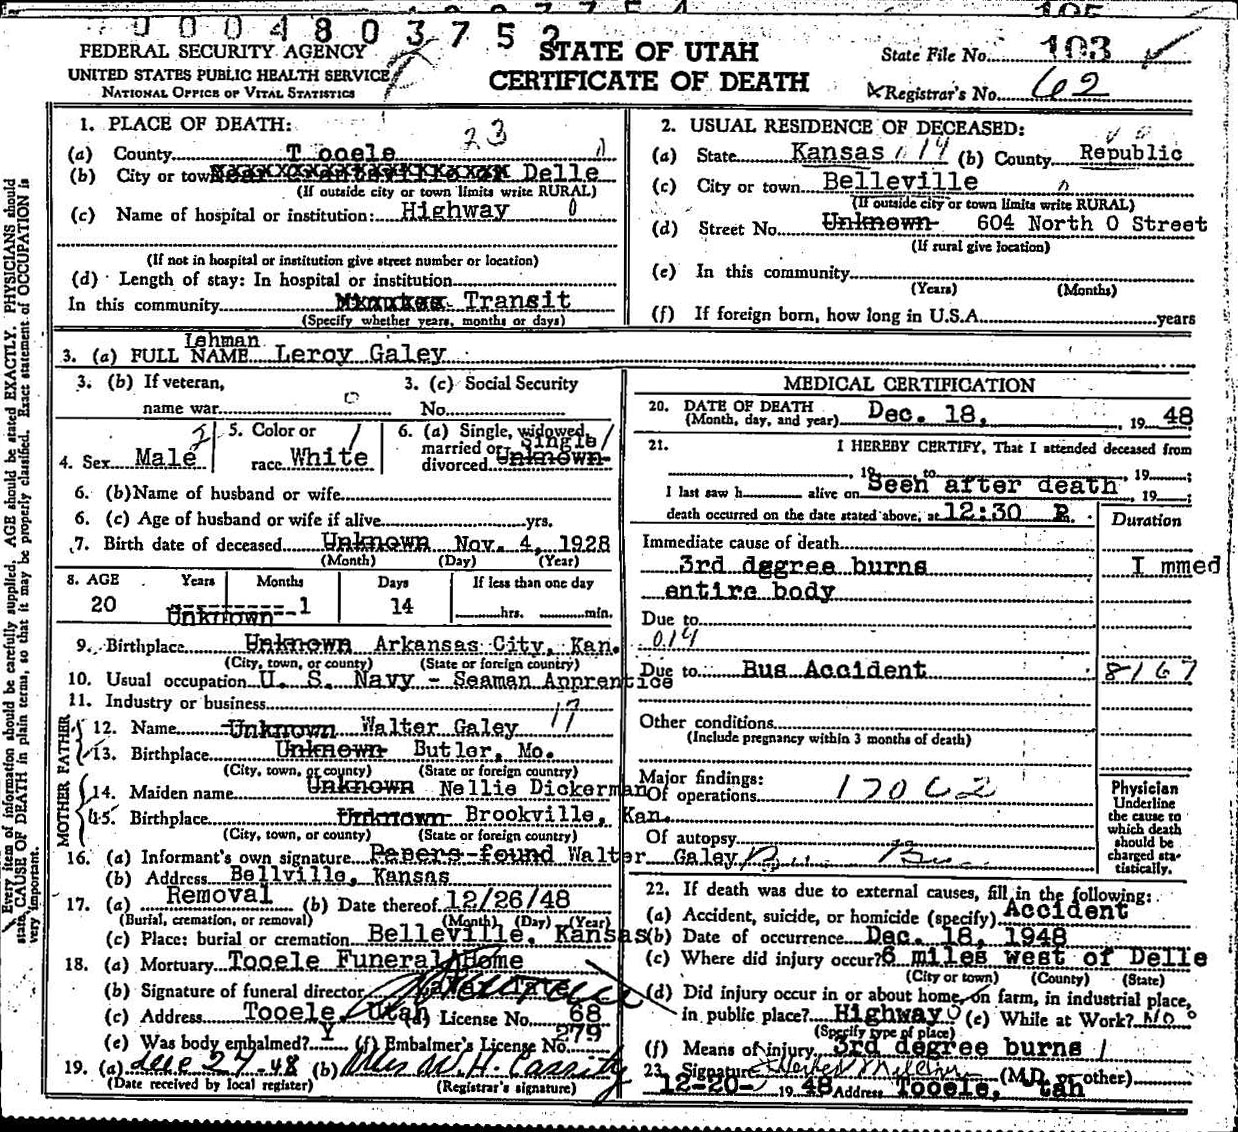 0 0 0 4 8 0 3 7 5 2
FEDERAL SECURITY AGENCY
UNITED STATES PUBLIC HEALTH SERVICE
NATIONAL OFFICE OF VITAL STATISTICS
STATE OF UTAH
CERTIFICATE OF DEATH
State File No. 103
Registrar's No. 62
Every item of information should be carefully supplied. AGE should be stated EXACTLY. PHYSICIANS should
state CAUSE OF DEATH in plain terms, so that it may be properly classified. Exact statement of OCCUPATION is
very important.
1. PLACE OF DEATH: 23
(a) County Tooele
(b) City or town Delle
(If outside city or town limits write RURAL)
(c) Name of hospital or institution: Highway 0
(If not in hospital or institution give street number or location)
(d) Length of stay: In hospital or institution
In this community Minutes Transit
(Specify whether years, months or days)
2. USUAL RESIDENCE OF DECEASED:
(a) State Kansas 14 (b) County Republic
(c) City or town Belleville
(If outside city or town limits write RURAL)
(d) Street No. Unknown 604 North O Street
(If rural give location)
(e) In this community
(Years) (Months)
(f) If foreign born, how long in U.S.A. years
Lehman
3. (a) FULL NAME Leroy Galey
3. (b) If veteran, name war 0
3. (c) Social Security No.
4. Sex Male 2
5. Color or race White 1
6. (a) Single, widowed, married or divorced Single Unknown
6. (b) Name of husband or wife
6. (c) Age of husband or wife if alive yrs.
7. Birth date of deceased Unknown Nov. 4, 1928
(Month) (Day) (Year)
8. AGE Years Months Days If less than one day
20 Unknown 1 14 hrs. min.
9. Birthplace Unknown Arkansas City, Kan.
(City, town, or county) (State or foreign country)
10. Usual occupation U. S. Navy - Seaman Apprentice
11. Industry or business 17
FATHER
12. Name Unknown Walter Galey
13. Birthplace Unknown Butler, Mo.
(City, town, or county) (State or foreign country)
MOTHER
14. Maiden name Unknown Nellie Dickerman
15. Birthplace Unknown Brookville, Kan.
(City, town, or county) (State or foreign country)
16. (a) Informant's own signature Papers found Walter Galey
(b) Address Bellville, Kansas
17. (a) Removal (b) Date thereof 12/26/48
(Burial, cremation, or removal) (Month) (Day) (Year)
(c) Place: burial or cremation Belleville, Kansas
18. (a) Mortuary Tooele Funeral Home
(b) Signature of funeral director
(c) Address Tooele, Utah (d) License No. 68
(e) Was body embalmed? Y (f) Embalmer's License No. 279
19. (a) Dec 27-48 (b) Mrs W. H. Cassity
(Date received by local register) (Registrar's signature)
MEDICAL CERTIFICATION
20. DATE OF DEATH Dec. 18, 1948
(Month, day, and year)
21. I HEREBY CERTIFY, That I attended deceased from
, 19 to , 19 ;
I last saw h alive on Seen after death , 19 ;
death occurred on the date stated above, at 12:30 P. m.
Duration
Immediate cause of death
3rd dggree burns I mmed
entire body
Due to
014
Due to Bus Accident 8167
Other conditions
(Include pregnancy within 3 months of death)
Major findings:
Of operations 17062
Of autopsy
Physician
Underline
the cause to
which death
should be
charged sta-
tistically.
22. If death was due to external causes, fill in the following:
(a) Accident, suicide, or homicide (specify) Accident
(b) Date of occurrence Dec. 18, 1948
(c) Where did injury occur? 6 miles west of Delle
(City or town) (County) (State)
(d) Did injury occur in or about home, on farm, in industrial place,
in public place? Highway 0 (e) While at Work? No 0
(Specify type of place)
(f) Means of injury 3rd degree burns 1
23. Signature (M.D. or other)
12-20- 1948 Address Tooele, tah